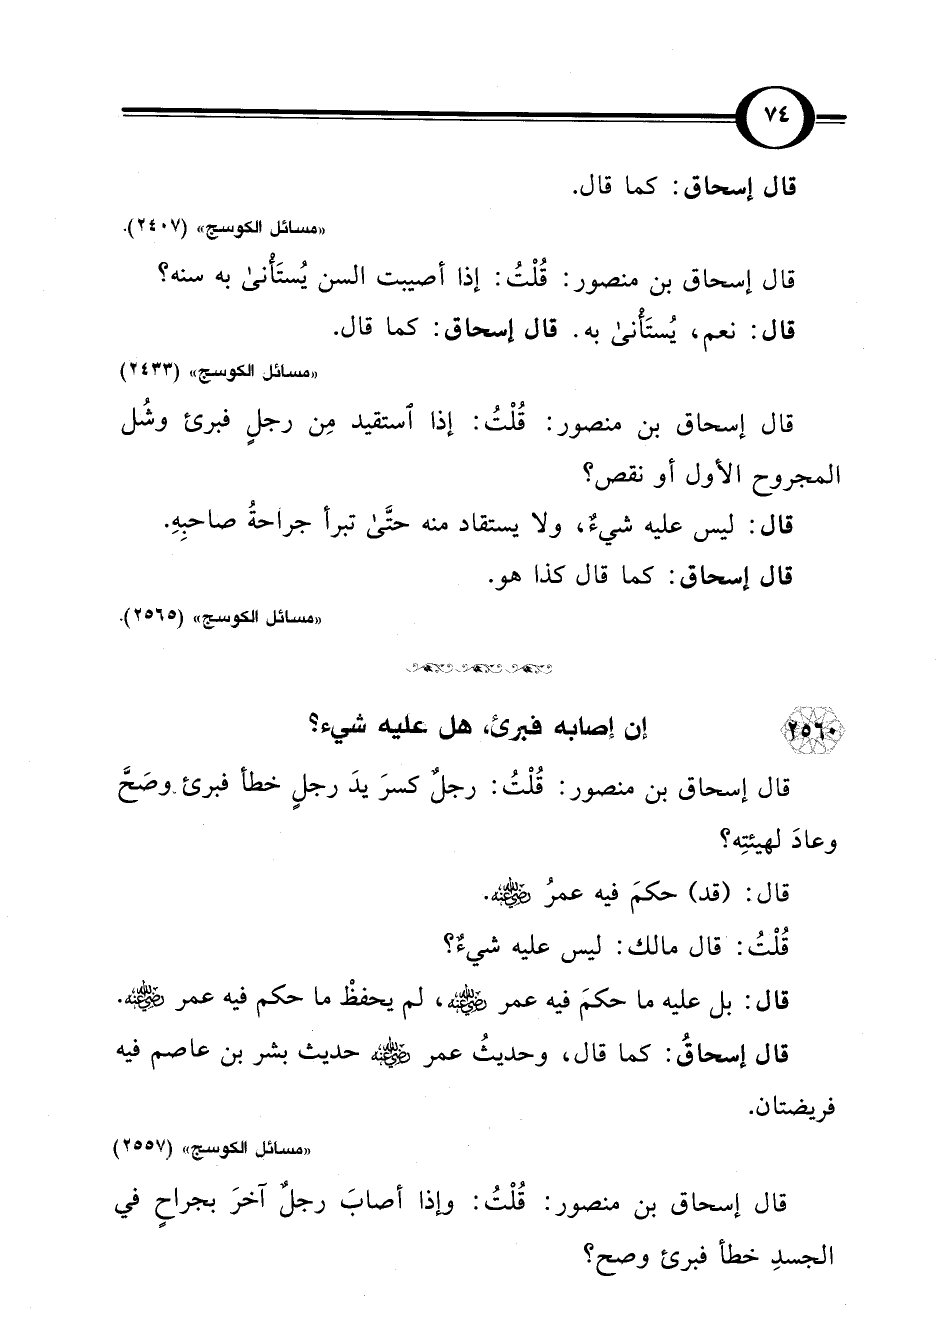 ٧٤
قال إسحاق: كما قال.
«مسائل الكوسج» (٢٤٠٧).
قال إسحاق بن منصور: قُلْتُ: إذا أصيبت السن يُستَأْنىٰ به سنه؟
قال: نعم، يُستَأْنىٰ به. قال إسحاق: كما قال.
«مسائل الكوسج» (٢٤٣٣)
قال إسحاق بن منصور: قُلْتُ: إذا ٱستقيد مِن رجلٍ فبرئ وشُل
المجروح الأول أو نقص؟
قال: ليس عليه شيءٌ، ولا يستقاد منه حتَّىٰ تبرأ جراحةُ صاحبِهِ.
قال إسحاق: كما قال كذا هو.
«مسائل الكوسج» (٢٥٦٥).
٢٥٦٠ إن إصابه فبرئ، هل عليه شيء؟
قال إسحاق بن منصور: قُلْتُ: رجلٌ كسرَ يدَ رجلٍ خطأ فبرئ وصَحَّ
وعادَ لهيئتِه؟
قال: (قد) حكمَ فيه عمرُ رضي الله عنه.
قُلْتُ: قال مالك: ليس عليه شيءٌ؟
قال: بل عليه ما حكمَ فيه عمر رضي الله عنه، لم يحفظْ ما حكم فيه عمر رضي الله عنه.
قال إسحاقُ: كما قال، وحديثُ عمر رضي الله عنه حديث بشر بن عاصم فيه
فريضتان.
«مسائل الكوسج» (٢٥٥٧)
قال إسحاق بن منصور: قُلْتُ: وإذا أصابَ رجلٌ آخرَ بجراحٍ في
الجسدِ خطأ فبرئ وصح؟